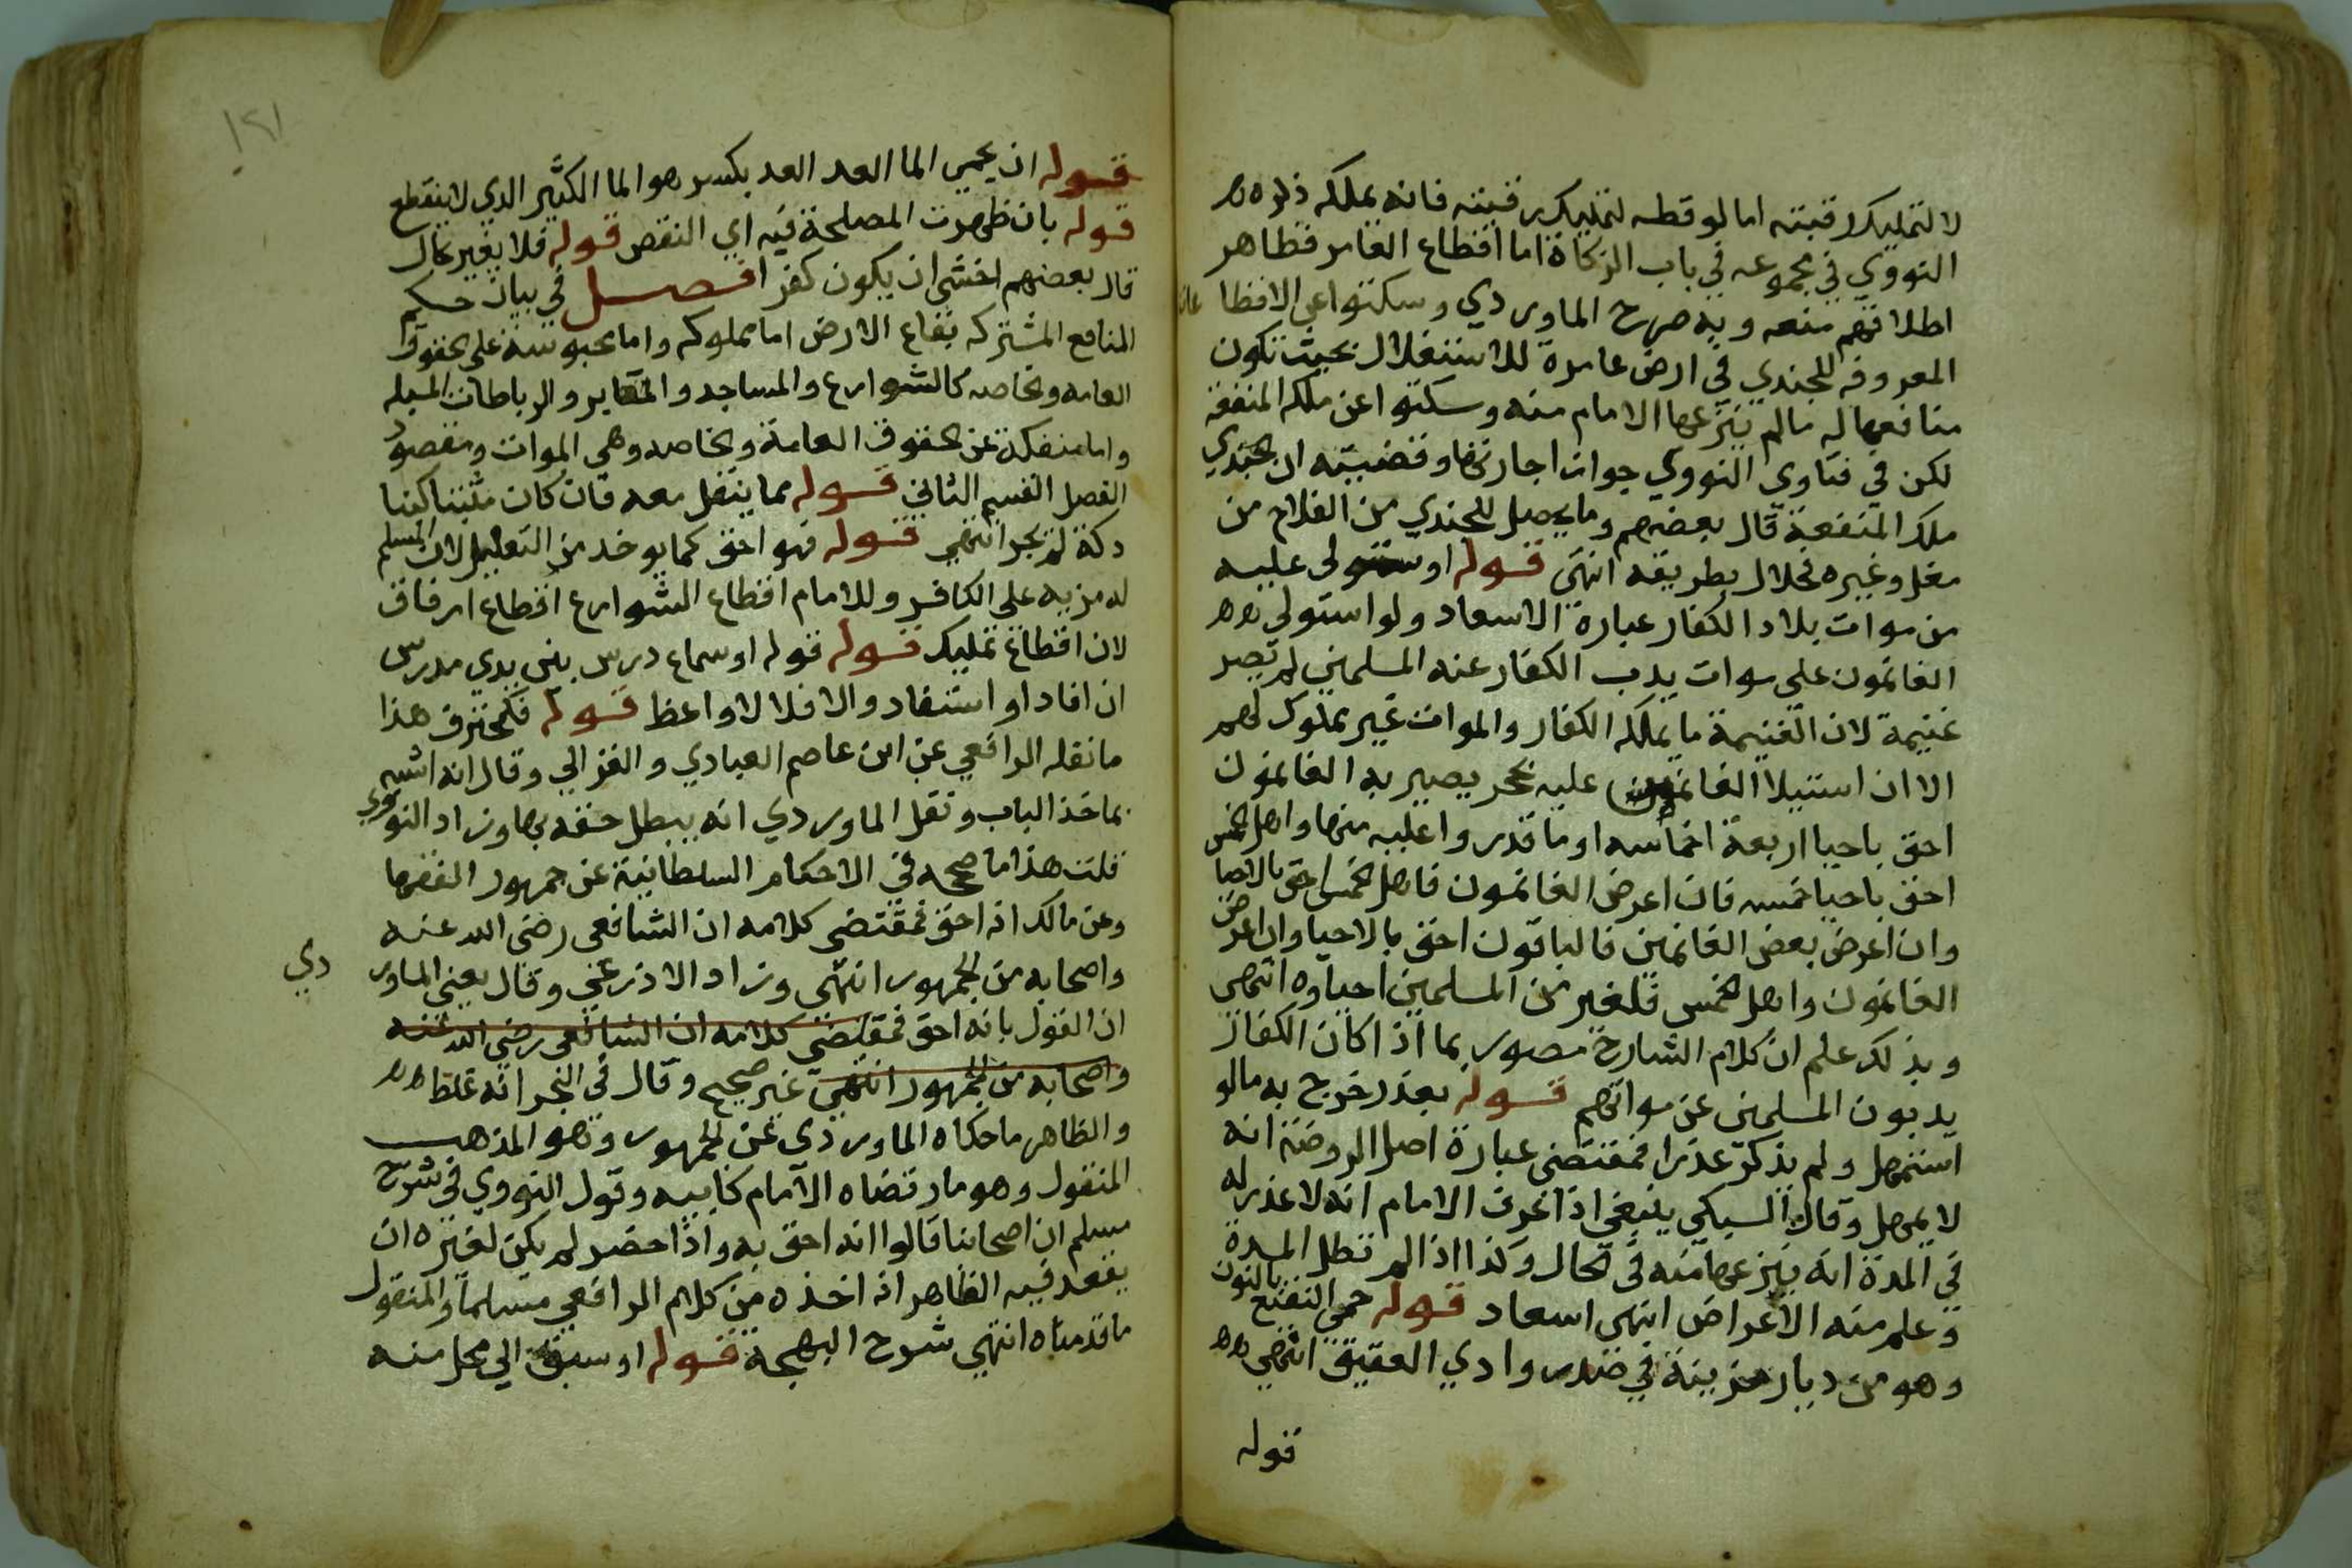 لا لتمليك رقبته اما لو قطعه لتمليك رقبته فانه يملكه ذكره
النووي في مجموعه في باب الزكاة اما اقطاع الغامر فظاهر
اطلاقهم منعه وبه صرح الماوردي وسكتوا عن الاقطا عات
المعروفه للجندي في ارض عامرة للاستغلال بحيث تكون
منافعها له مالم ينزعها الامام منه وسكتوا عن ملكه المنفعة
لكن في فتاوي النووي جواز اجارتها وقضيته ان الجندي
ملك المنفعة قال بعضهم وما يحصل للجندي من الفلاح من
مغل وغيره فحلال بطريقه انتهى قوله او ستولى عليه
من موات بلاد الكفار عبارة الاسعاد ولو استولي
الغانمون على موات يذب الكفار عنه المسلمين لم تصر
غنيمة لان الغنيمة ما يملكه الكفار والموات غير مملوك لهم
الا ان استيلا الغانمين عليه تحجر يصير به الغانمون
احق باحيا اربعة اخماسه او ما قدروا عليه منها واهل الخمس
احق باحيا خمسه فان اعرض الغانمون فاهل الخمس احق بالاحيا
وان اعرض بعض الغانمين فالباقون احق بالاحيا وان اعرض
الغانمون واهل الخمس فلغير من المسلمين احياوه انتهى
وبذلك علم ان كلام الشارح مصور بما اذا كان الكفار
يذبون المسلمين عن مواتهم قوله بعذر خرج به مالو
استمهل ولم يذكر عذرا فمقتضى عبارة اصل الروضة انه
لا يمهل وقال السبكي ينبغي اذا عرف الامام انه لا عذر له
في المدة انه ينزعها منه في الحال وكذا اذا لم تطل المدة
وعلم منه الاعراض انتهى اسعاد قوله حمى النقيع بالنون
وهو من ديار مزينة في صدر وادي العقيق انتهى
قوله
١٢١
قوله ان يحمي الما العد العد بكسر هو الما الكثير الذي لا ينقطع
قوله بان ظهرت المصلحة فيه اي النقص قوله فلا يغير بحال
قال بعضهم اخشى ان يكون كفرا فصل في بيان حكم
المنافع المشتركه بقاع الارض اما مملوكه واما محبوسة على الحقوق
العامه والخاصه كالشوارع والمساجد والمقابر والرباطات المسبله
واما منفكة عن الحقوق العامة والخاصه وهي الموات ومقصود
الفصل القسم الثاني قوله مما ينقل معه فان كان مثبتا كبنا
دكة لم يجز انتهى قوله فهو احق كما يوخذ من التعليل لان المسلم
له مزيه على الكافر وللامام اقطاع الشوارع اقطاع ارفاق
لان اقطاع تمليك قوله قوله او سماع درس بين يدي مدرس
ان افاد او استفاد والا فلا لا واعظ قوله فكمحترف هذا
مانقله الرافعي عن ابن عاصم العبادي والغزالي وقال انه اشبه
بماخذ الباب ونقل الماوردي انه يبطل حقه بها وزاد النووي
قلت هذا ما صححه في الاحكام السلطانية عن جمهور الفقها
وعن مالك انه احق فمقتضى كلامه ان الشافعي رضى الله عنه
واصحابه من الجمهور انتهى وزاد الاذرعي وقال يعني الماور دي
ان القول بانه احق فمقتضي كلامه ان الشافعى رضي الله عنه
واصحابه من الجمهور انتهى غير صحيح وقال في البحر انه غلط
والظاهر ما حكاه الماوردي عن الجمهور وهو المذهب
المنقول وهو ما ارتضاه الامام كابيه وقول النووي في شرح
مسلم ان اصحابنا قالوا انه احق به واذا حضر لم يكن لغيره ان
يقعد فيه الظاهر انه اخذه من كلام الرافعي مسلما والمنقول
ما قدمناه انتهي شرح البهجة قوله او سبق الي محل منه